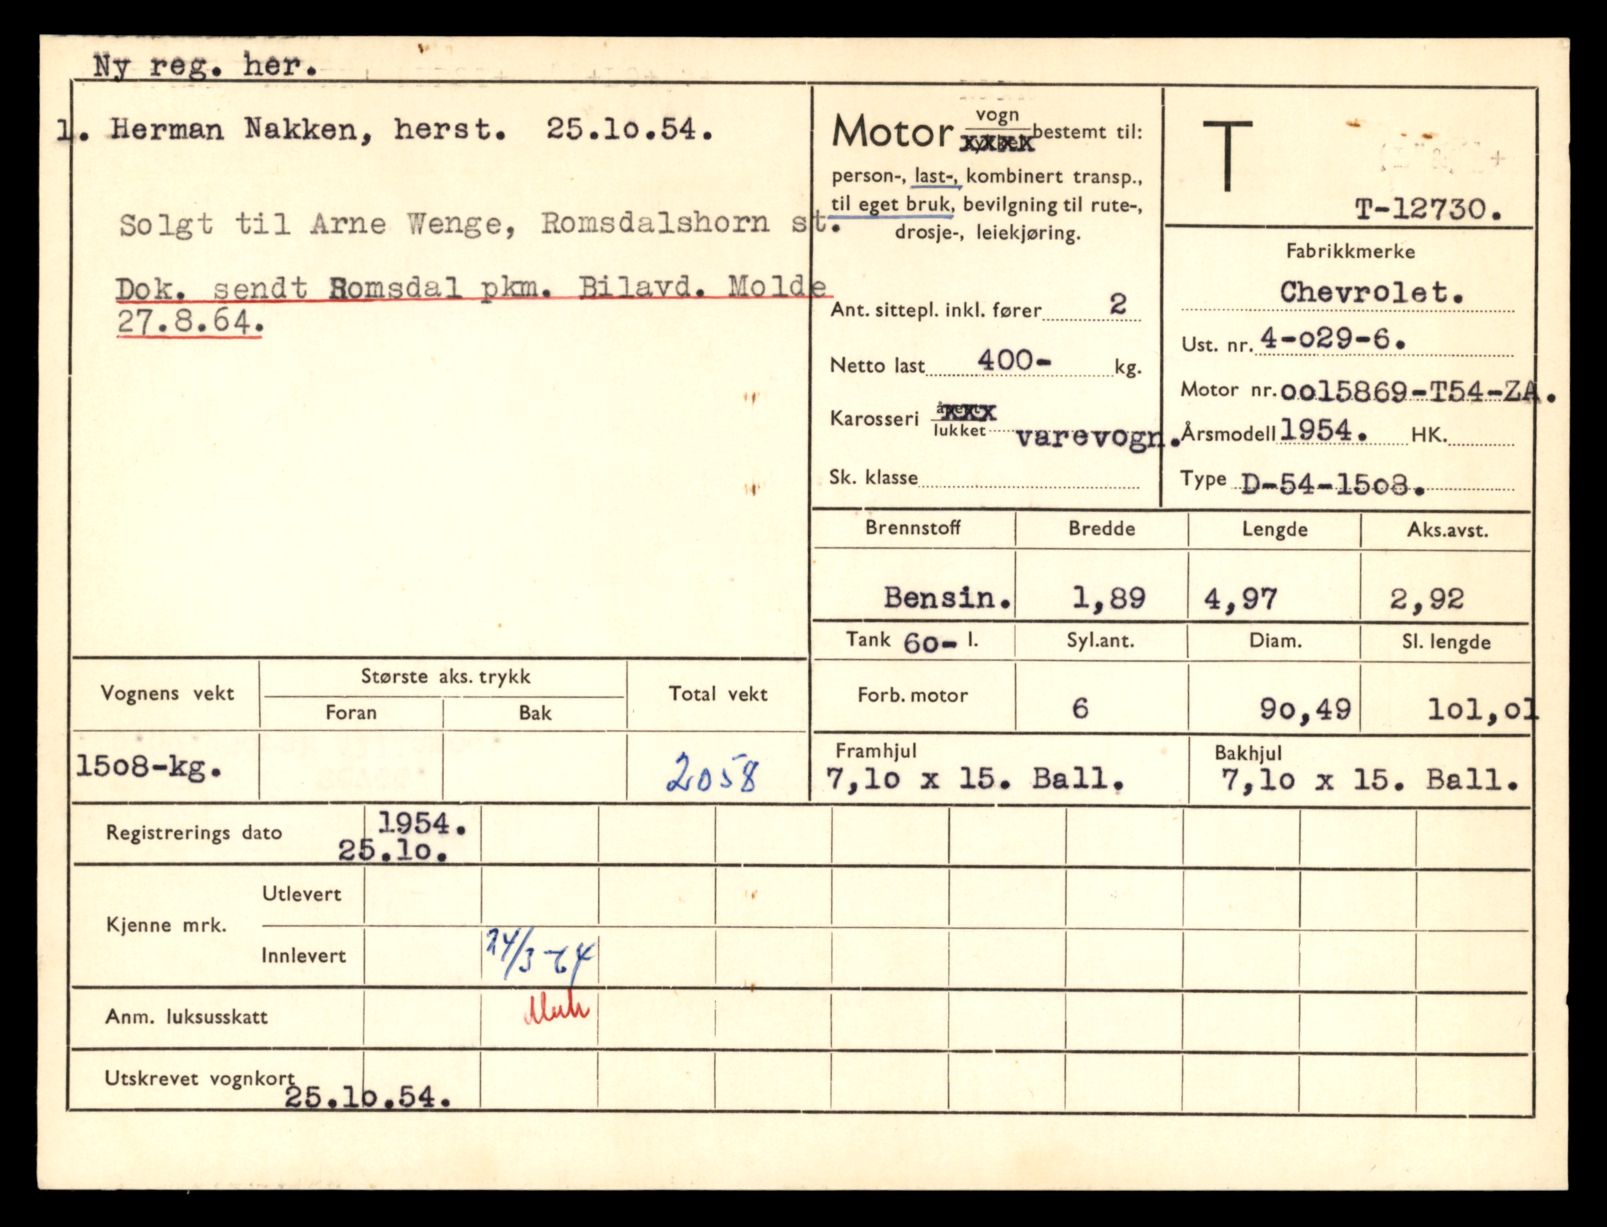 Ny reg. her.
1. Herman Nakken, herst. 25.1o.54.
Solgt til Arne Wenge, Romsdalshorn st.
Dok. sendt Romsdal pkm. Bilavd. Molde
27.8.64.
Motor vogn bestemt til:
person-, last-, kombinert transp.,
til eget bruk, bevilgning til rute-,
drosje-, leiekjøring.
Ant. sittepl. inkl. fører 2
Netto last 400- kg.
Karosseri
lukket varevogn.
Sk. klasse
T
T-12730.
Fabrikkmerke
Chevrolet.
Ust. nr. 4-o29-6.
Motor nr. oo15869-T54-ZA.
Årsmodell 1954. HK.
Type D-54-15o8.
Brennstoff Bredde Lengde Aks.avst.
Bensin. 1,89 4,97 2,92
Tank 6o- l. Syl.ant. Diam. Sl. lengde
Forb. motor 6 9o,49 1o1,o1
Framhjul Bakhjul
7,1o x 15. Ball. 7,1o x 15. Ball.
Vognens vekt Største aks. trykk Total vekt
Foran Bak
15o8-kg. 2058
Registrerings dato 1954.
25.1o.
Kjenne mrk. Utlevert
Innlevert 24/3-64
Anm. luksusskatt
Utskrevet vognkort
25.1o.54.